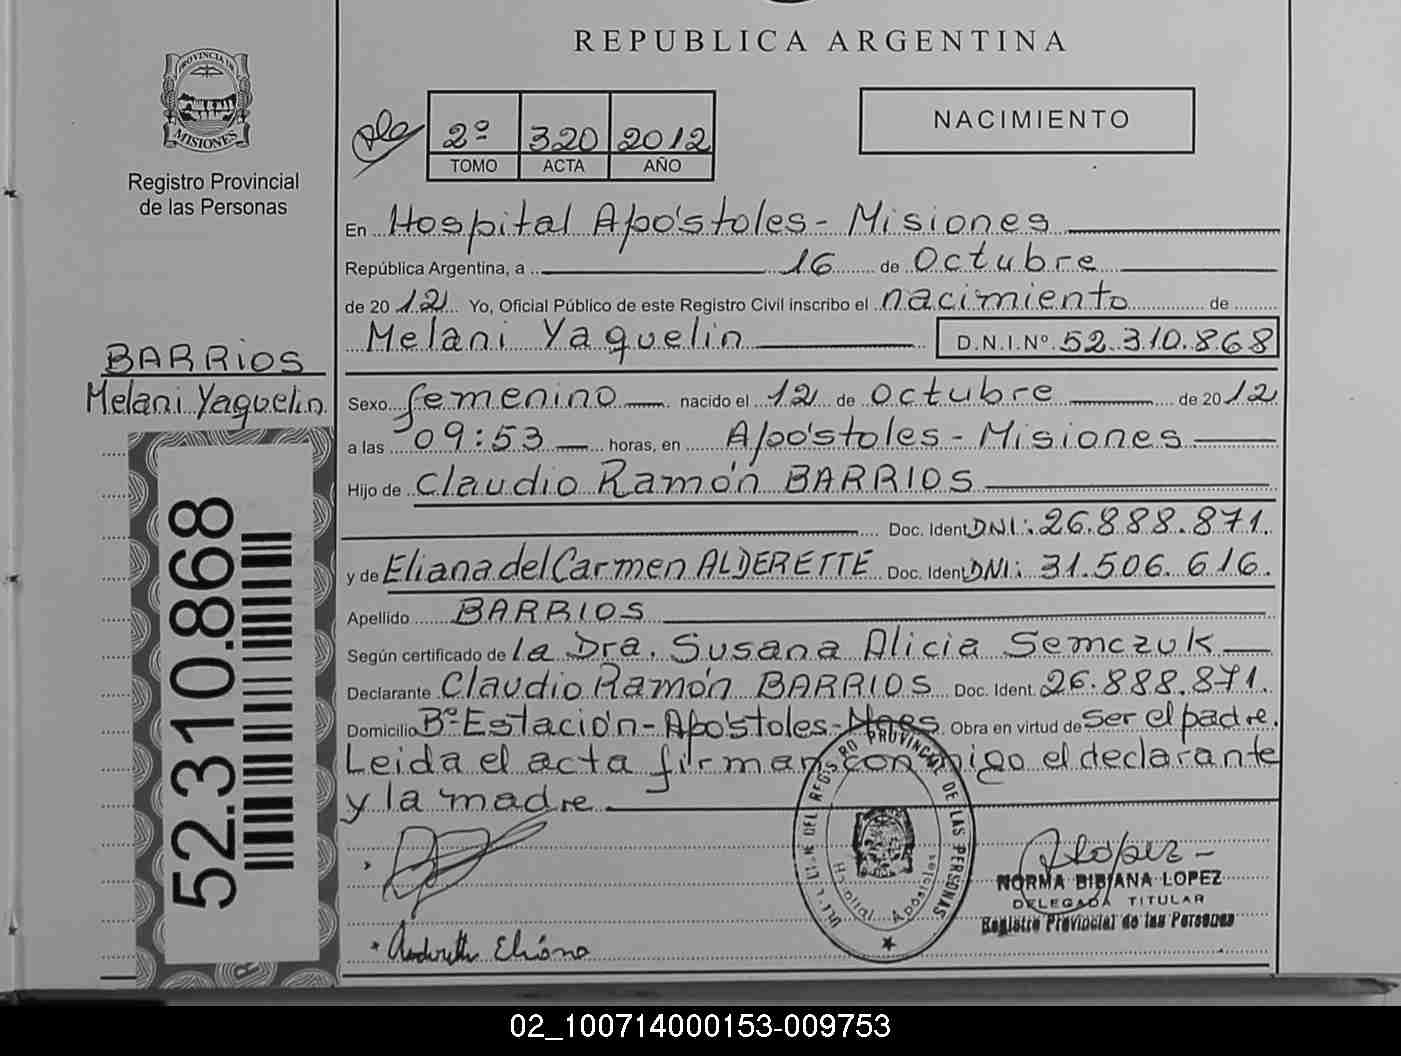 REPUBLICA ARGENTINA
PROVINCIA DE
MISIONES
Registro Provincial
de las Personas
2º 320 2012
TOMO ACTA AÑO
NACIMIENTO
En Hospital Apóstoles - Misiones
República Argentina, a 16 de Octubre
de 2012 Yo, Oficial Público de este Registro Civil inscribo el nacimiento de
Melani Yaquelin D.N.I.Nº 52.310.868
BARRIOS
Melani Yaquelin
Sexo femenino nacido el 12 de Octubre de 2012
a las 09:53 horas, en Apóstoles - Misiones
Hijo de Claudio Ramón BARRIOS
Doc. Ident DNI: 26.888.871.
y de Eliana del Carmen ALDERETTE Doc. Ident DNI: 31.506.616.
Apellido BARRIOS
Según certificado de la Dra. Susana Alicia Semczuk
Declarante Claudio Ramón BARRIOS Doc. Ident. 26.888.871.
Domicilio Bº Estación - Apóstoles - Mnes. Obra en virtud de ser el padre.
Leida el acta firman conmigo el declarante
y la madre
52.310.868
DEL REGISTRO PROVINCIAL DE LAS PERSONAS
Hospital Apóstoles
NORMA BIBIANA LOPEZ
DELEGADA TITULAR
Registro Provincial de las Personas
02_100714000153-009753